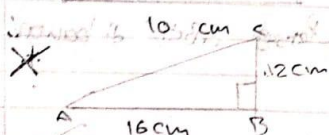 10 cm
C
12cm
A
16cm
B